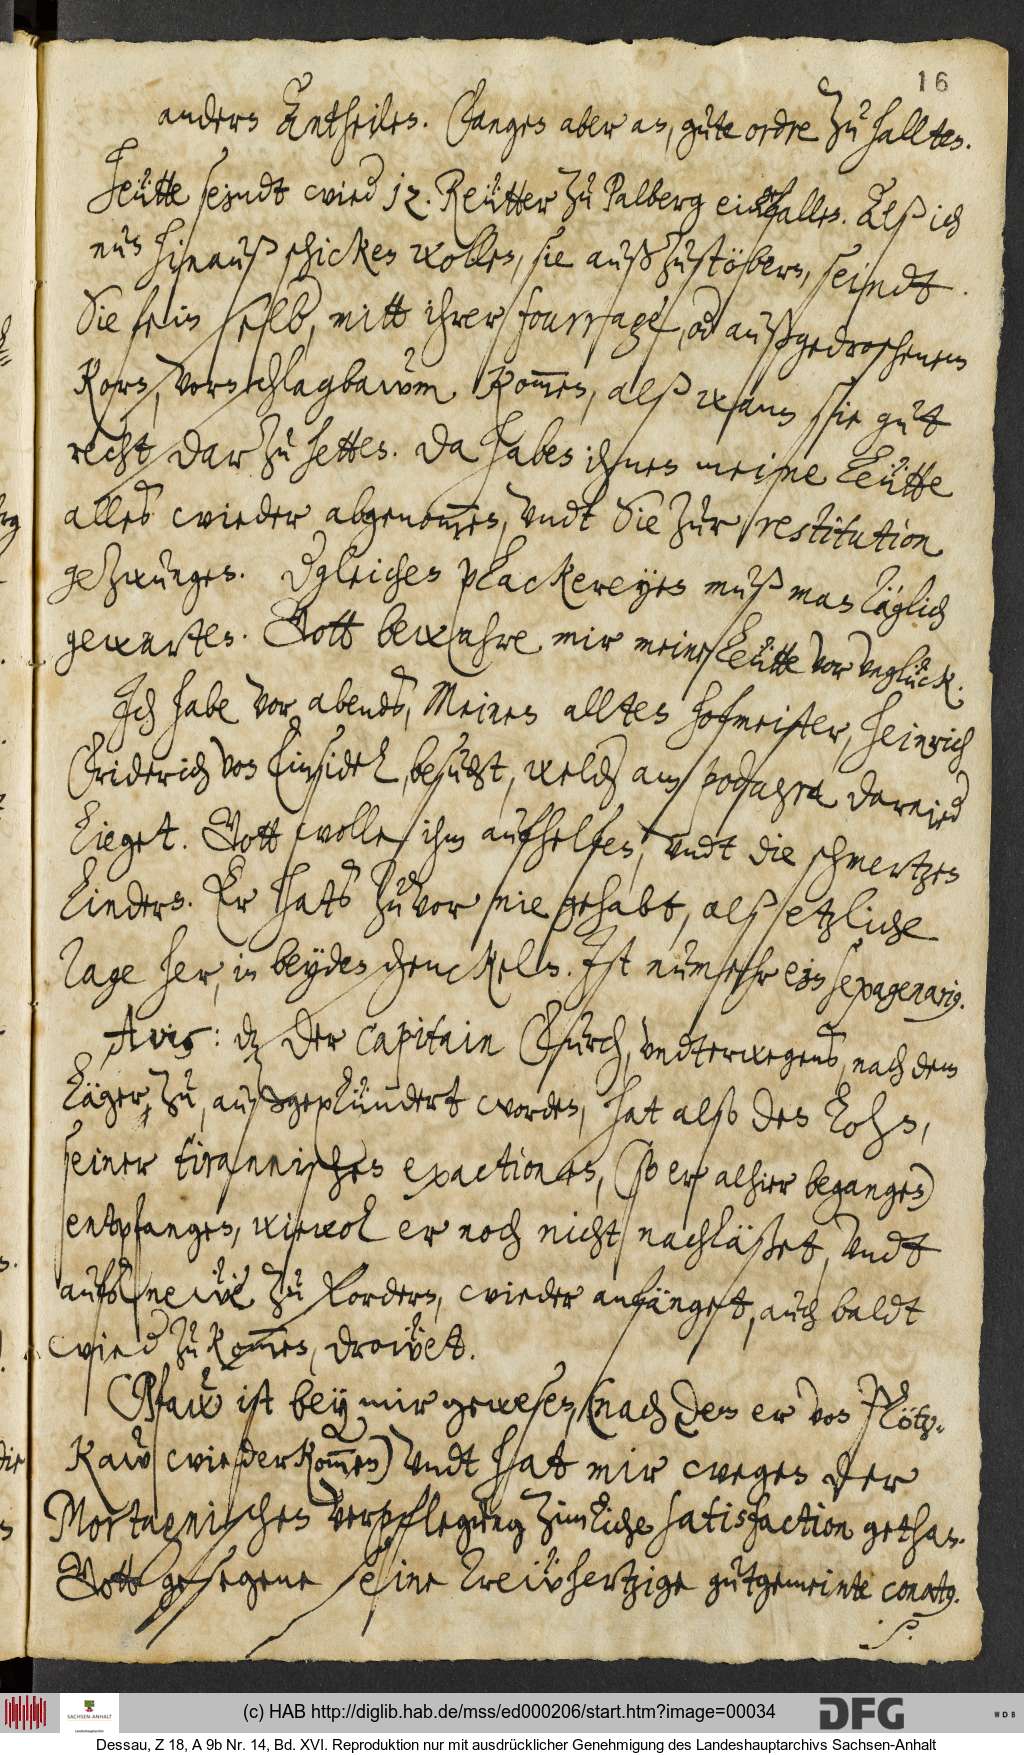 16
anders Antheiles. Fangen aber an, gute ordre zu hallten.
Heütte seyndt wied 12. Reütter zu Palberg eingefallen. Alß ich
nun hinauß schicken wollen, sie außzustöbern, seindt
Sie fein selb, mitt ihrer fourrage, od außgedroschenem
Korn, vorn schlagbawm kommen, alß wann sie gut
recht darzu hetten. da haben ihnen meine Leütte
alles wieder abgenommen, vndt Sie zur restitution
gezwungen. dgleichen plackereyen muß man täglich
gewarten. Gott bewahre mir meine Leütte vor vnglück.
Ich habe vor abends, Meinen allten hofmeister, Heinrich
Friderich von Einsidel, besucht, welch am podagra darnied
lieget. Gott wolle ihm aufhelfen, vndt die schmertzen
lindern. Er hats zuvor nie gehabt, alß etzliche
Tage her, in beyden schenckeln. Ist nunmehr ein sepagenarig.
Avis: dz der Capitain Fürch, vndterwegens, nach dem
Läger, zu, außgeplündert worden, hat also den Lohn,
seiner tirannischen exactionen, (so er alhier begangen)
entpfangen, wiewol er noch nicht nachläßet, vndt
aufs newe zu fordern, wieder anfänget, auch baldt
wied zu kommen, drowet.
Pfaw ist bey mir gewesen, (nach dem er von Plötz-
kaw wiederkommen) vndt hat mir wegen der
Mortagnischen verpflegung zimliche satisfaction gethan.
Gott gesegene seine trewhertzige gutgemeinte conatg.
(c) HAB http://diglib.hab.de/mss/ed000206/start.htm?image=00034
SACHSEN-ANHALT
DFG
WDB
Dessau, Z 18, A 9b Nr. 14, Bd. XVI. Reproduktion nur mit ausdrücklicher Genehmigung des Landeshauptarchivs Sachsen-Anhalt